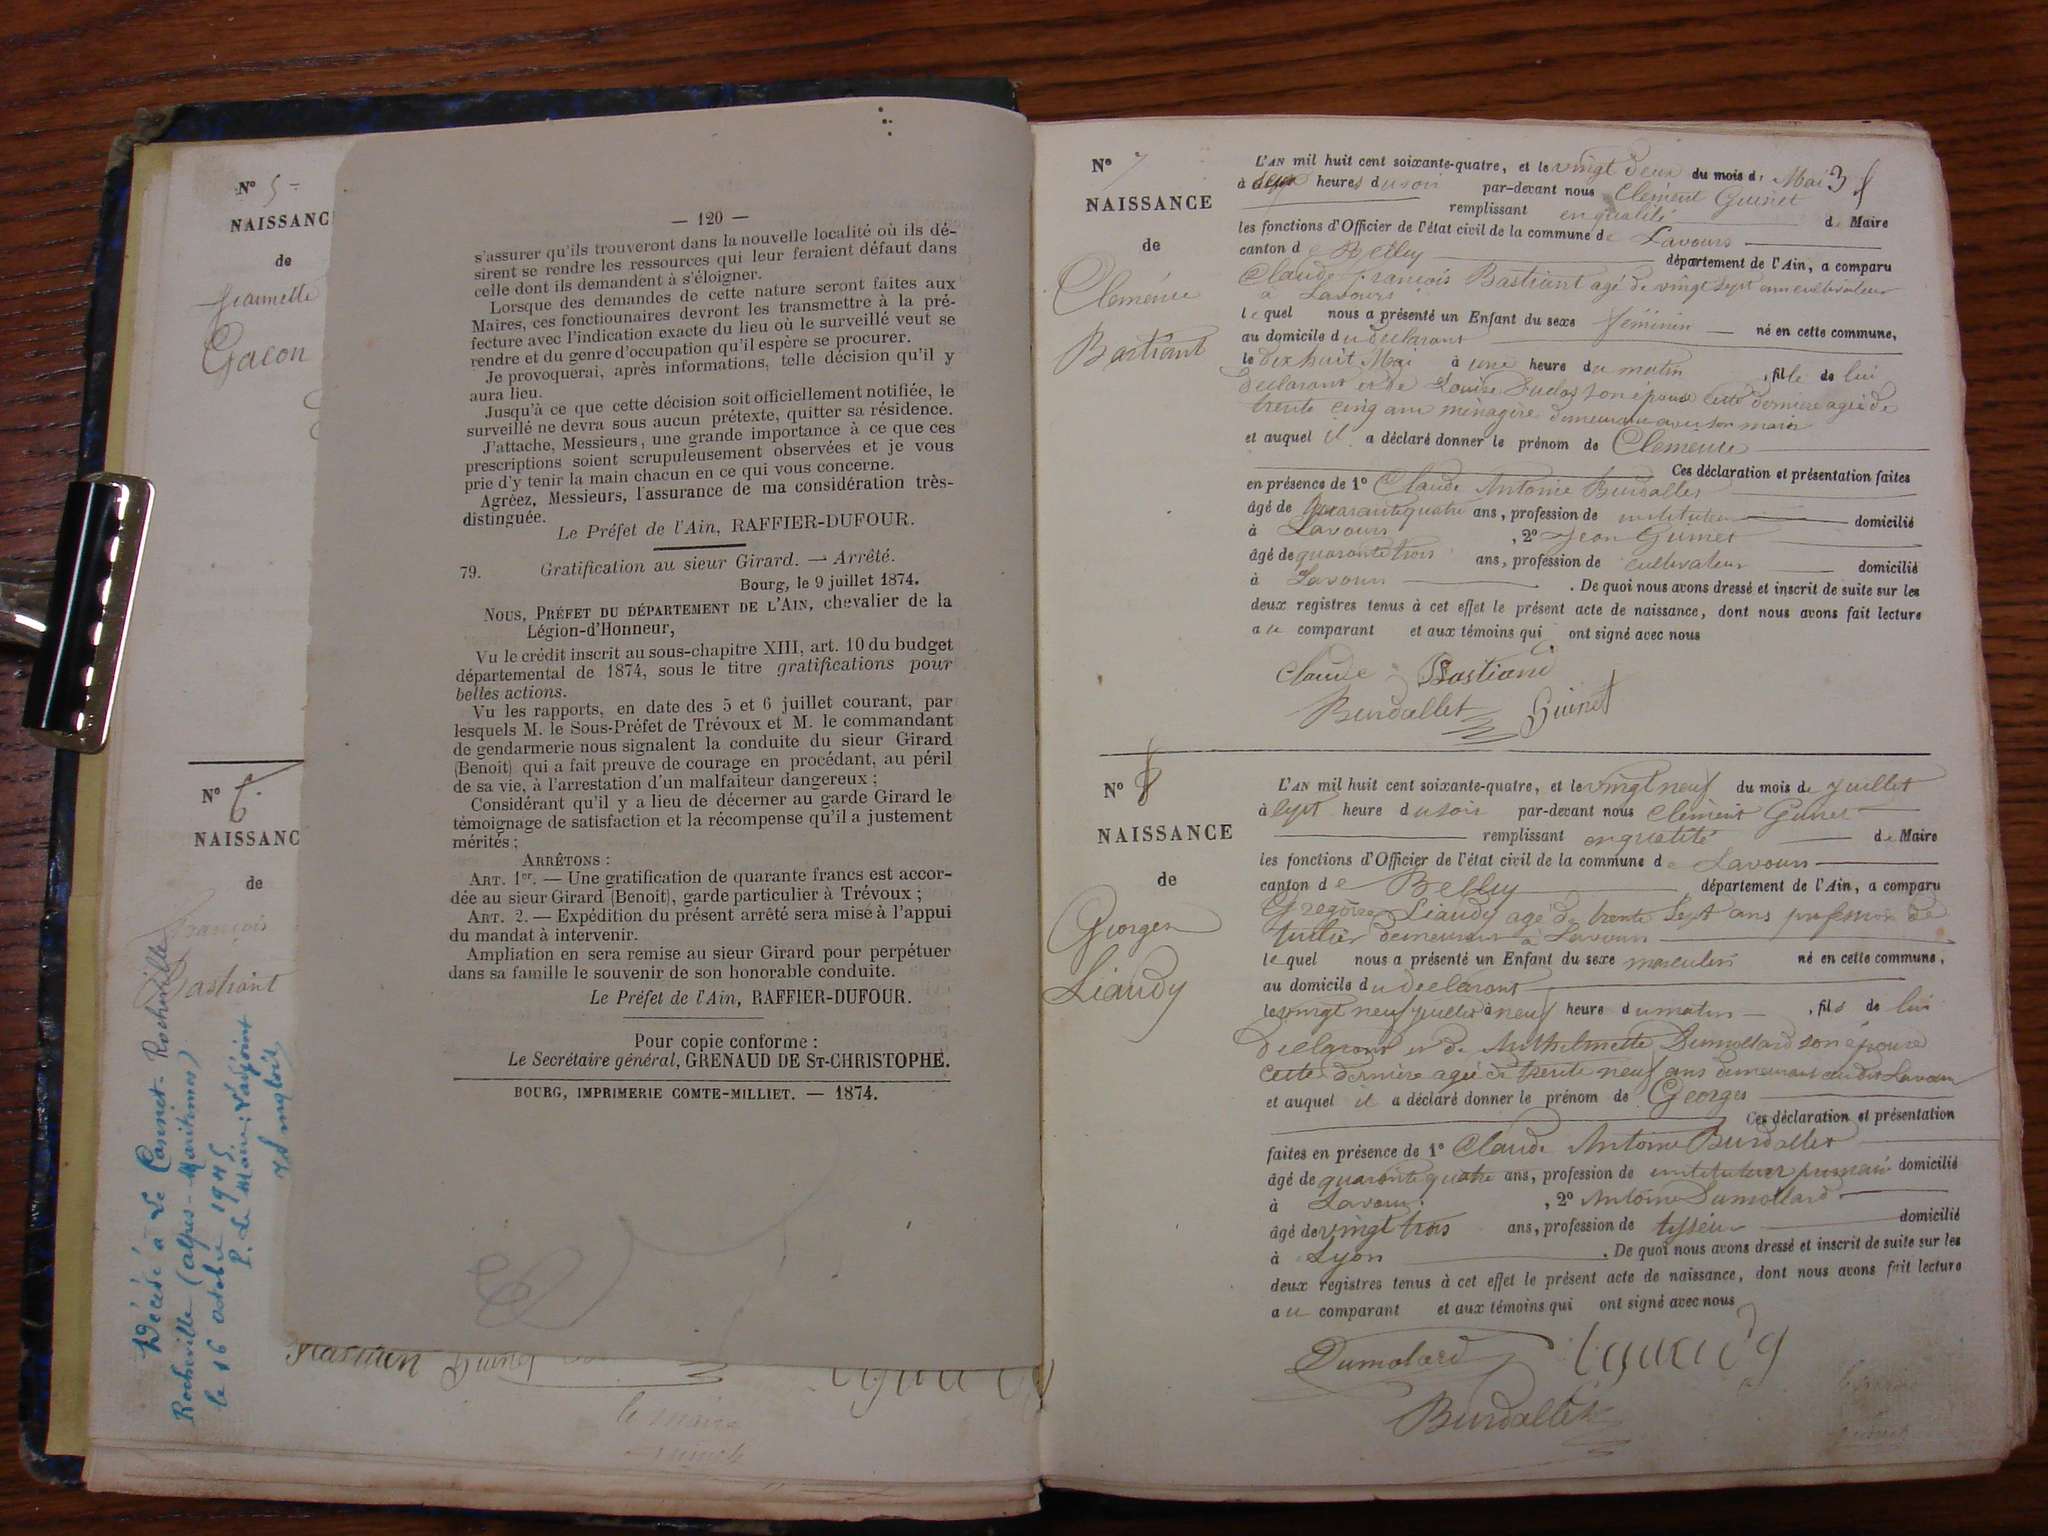 N° 5
NAISSANC
de
Jeannette
Gacon
N° 6
NAISSANC
de
François
Bastiant
Décédé à Le Cannet-Rocheville
Rocheville (Alpes-Maritimes)
le 16 octobre 1945.
P. Le Maire: l'adjoint
— 120 —
s'assurer qu'ils trouveront dans la nouvelle localité où ils dé-
sirent se rendre les ressources qui leur feraient défaut dans
celle dont ils demandent à s'éloigner.
Lorsque des demandes de cette nature seront faites aux
Maires, ces fonctionnaires devront les transmettre à la pré-
fecture avec l'indication exacte du lieu où le surveillé veut se
rendre et du genre d'occupation qu'il espère se procurer.
Je provoquerai, après informations, telle décision qu'il y
aura lieu.
Jusqu'à ce que cette décision soit officiellement notifiée, le
surveillé ne devra sous aucun prétexte, quitter sa résidence.
J'attache, Messieurs, une grande importance à ce que ces
prescriptions soient scrupuleusement observées et je vous
prie d'y tenir la main chacun en ce qui vous concerne.
Agréez, Messieurs, l'assurance de ma considération très-
distinguée.
Le Préfet de l'Ain, RAFFIER-DUFOUR.
79. Gratification au sieur Girard. — Arrêté.
Bourg, le 9 juillet 1874.
NOUS, PRÉFET DU DÉPARTEMENT DE L'AIN, chevalier de la
Légion-d'Honneur,
Vu le crédit inscrit au sous-chapitre XIII, art. 10 du budget
départemental de 1874, sous le titre gratifications pour
belles actions.
Vu les rapports, en date des 5 et 6 juillet courant, par
lesquels M. le Sous-Préfet de Trévoux et M. le commandant
de gendarmerie nous signalent la conduite du sieur Girard
(Benoit) qui a fait preuve de courage en procédant, au péril
de sa vie, à l'arrestation d'un malfaiteur dangereux ;
Considérant qu'il y a lieu de décerner au garde Girard le
témoignage de satisfaction et la récompense qu'il a justement
mérités ;
ARRÊTONS :
ART. 1er. — Une gratification de quarante francs est accor-
dée au sieur Girard (Benoit), garde particulier à Trévoux ;
ART. 2. — Expédition du présent arrêté sera mise à l'appui
du mandat à intervenir.
Ampliation en sera remise au sieur Girard pour perpétuer
dans sa famille le souvenir de son honorable conduite.
Le Préfet de l'Ain, RAFFIER-DUFOUR.
Pour copie conforme :
Le Secrétaire général, GRENAUD DE ST-CHRISTOPHE.
BOURG, IMPRIMERIE COMTE-MILLIET. — 1874.
le maire
N° 7
NAISSANCE
de
Clemence
Bastiant
L'AN mil huit cent soixante-quatre, et le vingt deux du mois de Mai 3
à sept heures du soir par-devant nous Clément Guinet
remplissant en qualité de Maire
les fonctions d'Officier de l'état civil de la commune de Lavours
canton de Belley département de l'Ain, a comparu
Claude François Bastiant agé de vingt sept ans cultivateur
à Lavours
lequel nous a présenté un Enfant du sexe féminin né en cette commune,
au domicile du déclarant
le dix huit Mai à une heure du matin , fille de lui
déclarant et de Louise Duclos son épouse cette dernière agée de
trente cinq ans ménagère demeurant avec son mari
et auquel il a déclaré donner le prénom de Clemence
Ces déclaration et présentation faites
en présence de 1° Claude Antoine Burdallet
âgé de quarante quatre ans, profession de instituteur domicilié
à Lavours , 2° Jean Guinet
âgé de quarante trois ans, profession de cultivateur domicilié
à Lavours . De quoi nous avons dressé et inscrit de suite sur les
deux registres tenus à cet effet le présent acte de naissance, dont nous avons fait lecture
au comparant et aux témoins qui ont signé avec nous
Claude Bastiand
Burdallet Guinet
N° 8
NAISSANCE
de
Georges
Liaudy
L'AN mil huit cent soixante-quatre, et le vingt neuf du mois de juillet
à sept heure du soir par-devant nous Clément Guinet
remplissant en qualité de Maire
les fonctions d'Officier de l'état civil de la commune de Lavours
canton de Belley département de l'Ain, a comparu
Gregoire Liaudy agé de trente sept ans profession de
tuilier demeurant à Lavours
lequel nous a présenté un Enfant du sexe masculin né en cette commune,
au domicile du déclarant
le vingt neuf juillet à neuf heure du matin , fils de lui
déclarant et de Anthelmette Dumollard son épouse
cette dernière agée de trente neuf ans demeurant audit Lavours
et auquel il a déclaré donner le prénom de Georges
Ces déclaration et présentation
faites en présence de 1° Claude Antoine Burdallet
âgé de quarante quatre ans, profession de instituteur primaire domicilié
à Lavours , 2° Antoine Dumollard
âgé de vingt trois ans, profession de tisseur domicilié
à Lyon . De quoi nous avons dressé et inscrit de suite sur les
deux registres tenus à cet effet le présent acte de naissance, dont nous avons fait lecture
au comparant et aux témoins qui ont signé avec nous
Dumolard
Burdallet